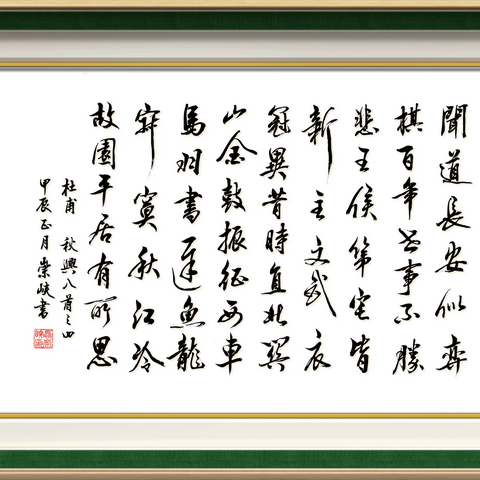 聞道長安似弈
棋百年世事不勝
悲王侯第宅皆
新主文武衣
冠異昔時直北関
山金鼓振征西車
馬羽書遲魚龍
寂寞秋江冷
故園平居有所思
杜甫 秋興八首之四
甲辰正月崇峽書